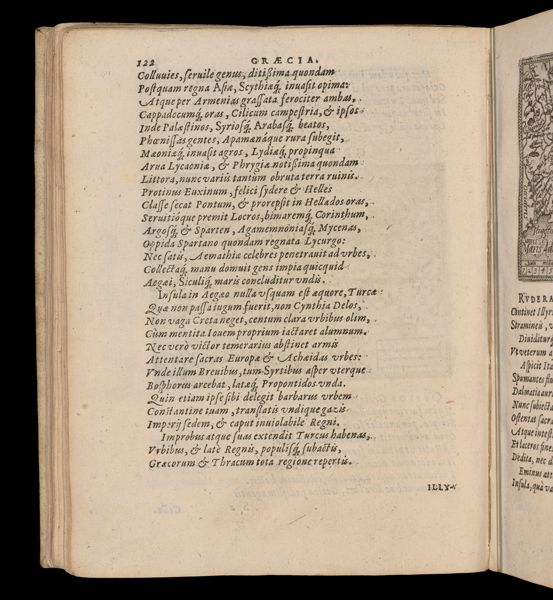 122 GRÆCIA.
Colluuies, seruile genus, ditißima quondam
Postquam regna Asiæ, Scythiæq́, inuasit opima:
Atque per Armenias grassata ferociter ambas,
Cappadocumq́, oras, Cilicum campestria, & ipsos
Inde Palæstinos, Syriosq́, Arabasq́, beatos,
Phœnissas gentes, Apamanáque rura subegit,
Mæoniæq́, inuasit agros, Lydiæq́, propinqua
Arua Lycaoniæ, & Phrygiæ notißima quondam
Littora, nunc variis tantùm obruta terra ruinis.
Protinus Euxinum, felici sydere & Helles
Classe secat Pontum, & prorepsit in Hellados oras,
Seruitióque premit Locros, bimaremq́, Corinthum,
Argosq́, & Sparten, Agamemnoniasq́, Mycenas,
Oppida Spartano quondam regnata Lycurgo:
Nec satis, Aemathia celebres penetrauit ad vrbes,
Collectáq, manu domuit gens impia quicquid
Aegæi, Siculiq́, maris concluditur vndis.
Insula in Aegæo nulla vsquam est æquore, Turcæ
Quæ non passa iugum fuerit, non Cynthia Delos,
Non vaga Creta neget, centum clara vrbibus olim,
Cùm mentita Iouem proprium iactaret alumnum.
Nec verò victor temerarius abstinet armis
Attentare sacras Europæ & Achæidas vrbes:
Vnde illum Breuibus, tum Syrtibus asper vterque
Bosphorus arcebat, latæq́, Propontidos vnda.
Quin etiam ipse sibi delegit barbarus vrbem
Constantine tuam, translatis vndique gazis
Imperij sedem, & caput inuiolabile Regni.
Improbus atque suas extendit Turcus habenas,
Vrbibus, & latè Regnis, populisq́, subactis,
Græcorum & Thracum tota regione repertis.
ILLY-
RVDERA
Continet Illyri
Stramineis, v
Diuiditurq́
Vt veterum a
Aspicit Ita
Spumantes flu
Dalmatia aura
Nunc subiecta
Ostentat sacra
Atque intesti
Et laceros fine
Dedita, nec d
Eminus att
Insula, quà va